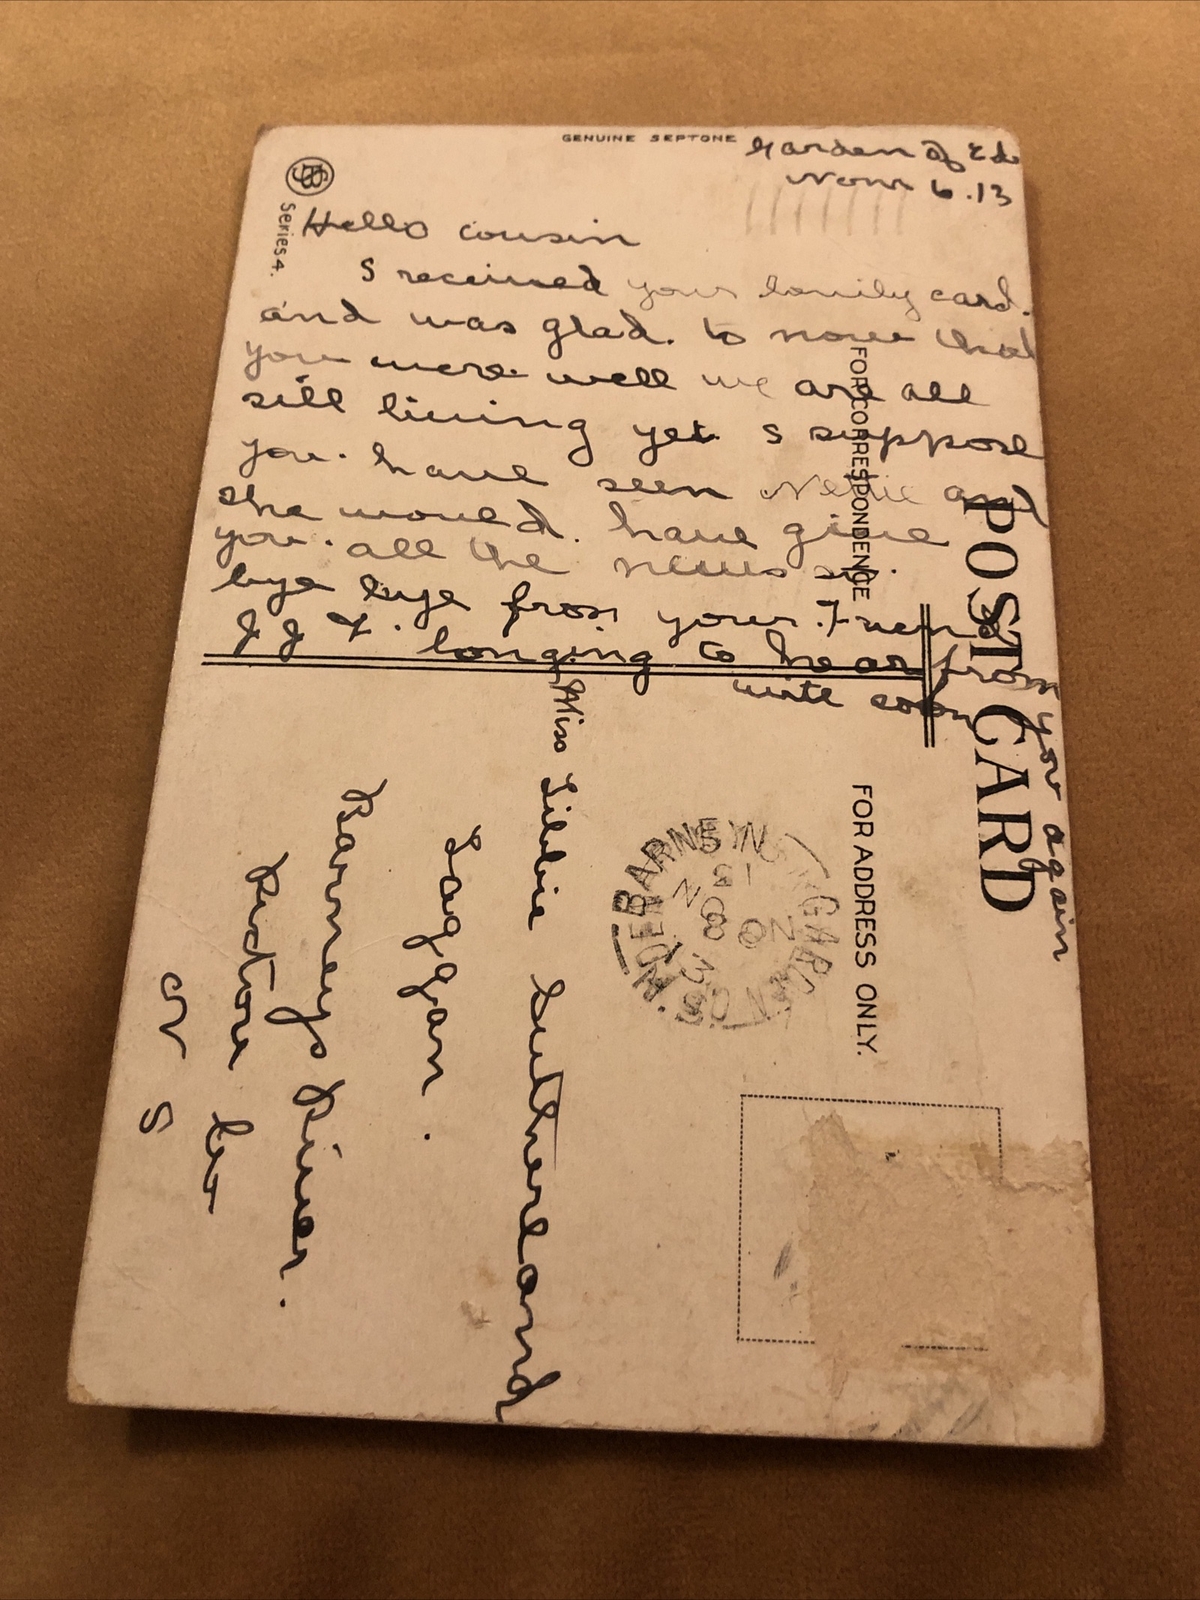 GENUINE SEPTONE
Series 4.
Garden of Ed
Nov 6. 13
Hello cousin
I received your lovily card.
and was glad. to now that
you were well we are all
sill living yet I suppose
you. have seen Nettie and
she would. have give
you. all the news so.
bye bye from your. Friend
J J longing to hear from you again
write soon
FOR CORRESPONDENCE
POST CARD
FOR ADDRESS ONLY.
BARNEY
NO 8
13
N.S.
Miss Libbie Sutherland
Laggan.
Barneys River.
Pictou
N S